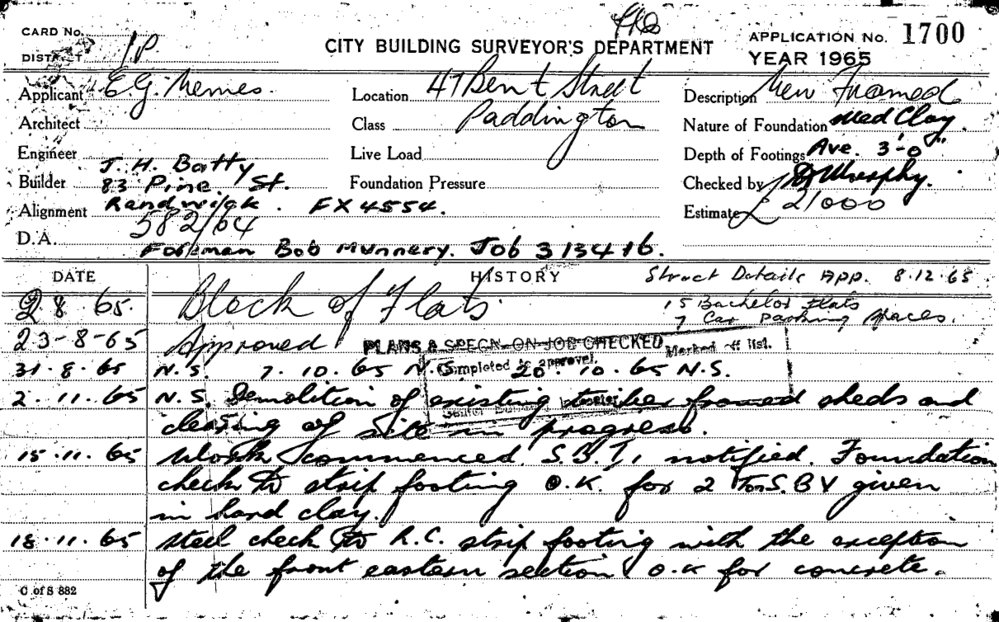 CARD No.
CITY BUILDING SURVEYOR'S DEPARTMENT
APPLICATION No. 1700
DISTRICT 1P
YEAR 1965
Applicant E.G. Nemes.
Location 47 Bent Street
Paddington
Description New Framed
Architect
Class
Nature of Foundation Med Clay.
Engineer
Live Load
Depth of Footings Ave. 3'-0"
Builder J. H. Batty
83 Pine St.
Randwick. FX4554.
Foundation Pressure
Checked by Murphy.
Alignment
Estimate £21000
D.A. 582/64
Foreman Bob Munnery. Job 313416.
DATE HISTORY Struct Details App. 8.12.65
2 8 65. Block of Flats. 15 Bachelor Flats
7 Car Parking spaces.
23-8-65 Approved PLANS & SPECN. ON JOB CHECKED Marked off list.
Completed to approval.
31.8.65 N.S. 7.10.65 N.S. 20.10.65 N.S.
2.11.65 N.S. Demolition of existing timber framed sheds and
clearing of site in progress.
15.11.65 Work commenced. S.B.I. notified. Foundation
check to strip footing O.K. for 2 Ton S.B.V given
in hard clay.
18.11.65 Steel check to R.C. strip footing with the exception
of the front eastern section O.K for concrete.
C of S 882